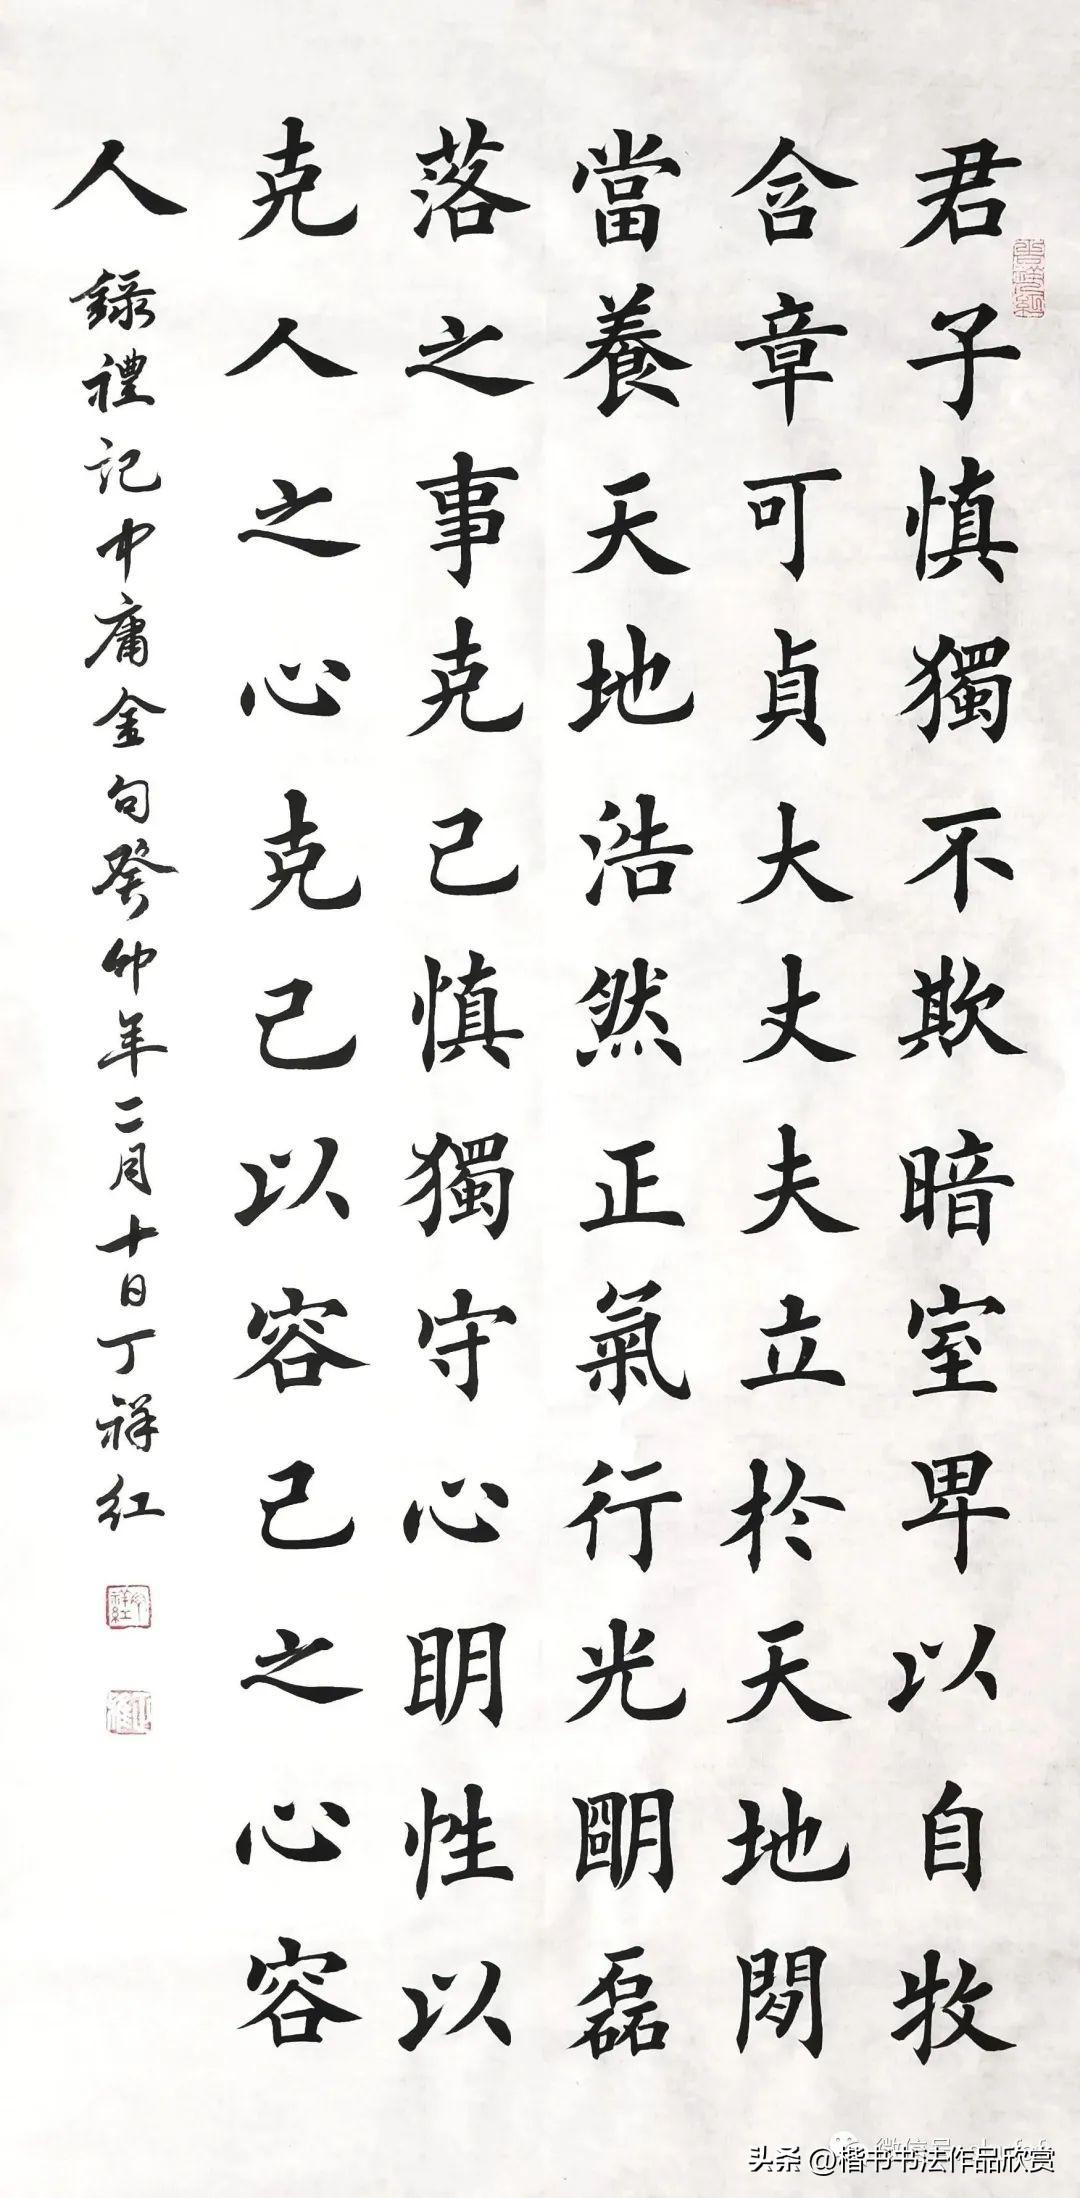 君子慎獨不欺暗室卑以自牧
含章可貞大丈夫立於天地間
當養天地浩然正氣行光明磊
落之事克己慎獨守心明性以
克人之心克己以容己之心容
人
錄禮記中庸金句癸卯年二月十日丁祥紅
头条@楷书书法作品欣赏